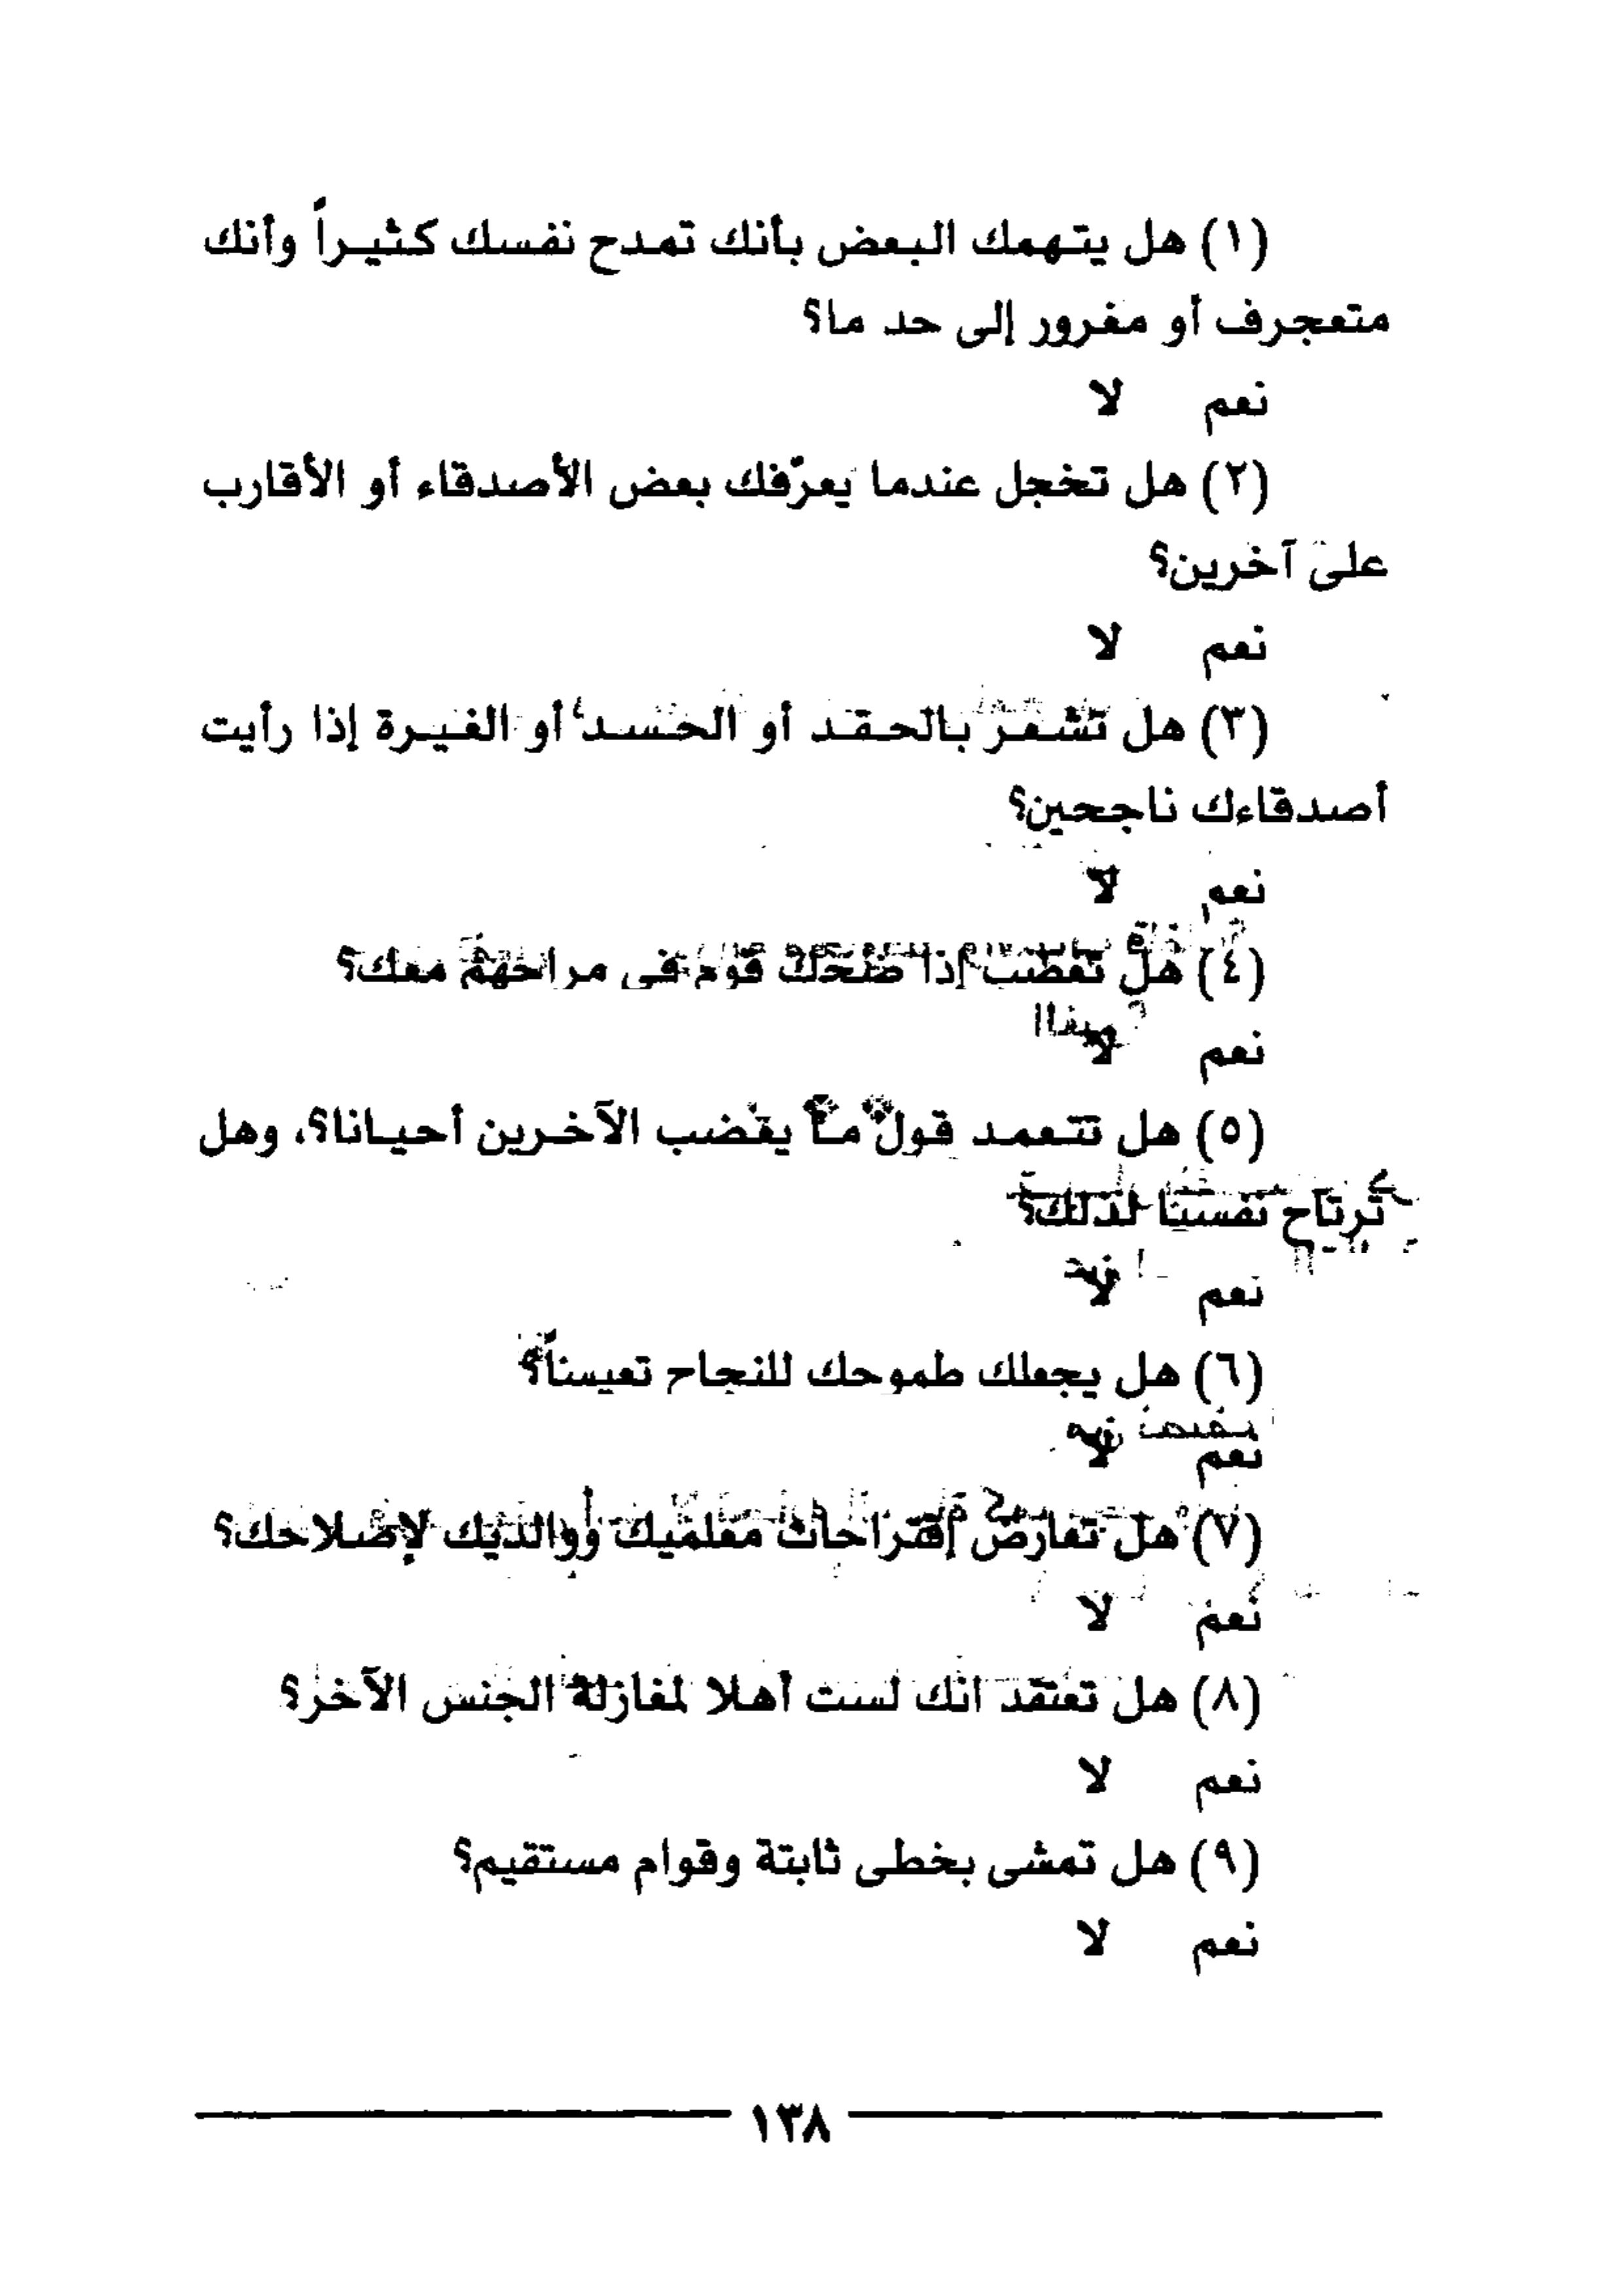 (١) هل يتهمك البعض بأنك تمدح نفسك كثيراً وأنك
متعجرف أو مغرور إلى حد ما؟
نعم لا
(٢) هل تخجل عندما يعرّفك بعض الأصدقاء أو الأقارب
على آخرين؟
نعم لا
(٣) هل تشعر بالحقد أو الحسد أو الغيرة إذا رأيت
أصدقاءك ناجحين؟
نعم لا
(٤) هل تغضب إذا ضحك قوم فى مزاحهم معك؟
نعم لا
(٥) هل تتعمد قول ما يغضب الآخرين أحيانا؟، وهل
ترتاح نفسيا لذلك؟
نعم لا
(٦) هل يجعلك طموحك للنجاح تعيساً؟
نعم لا
(٧) هل تعارض إقتراحات معلميك أووالديك لإصلاحك؟
نعم لا
(٨) هل تعتقد انك لست أهلا لمغازلة الجنس الآخر؟
نعم لا
(٩) هل تمشى بخطى ثابتة وقوام مستقيم؟
نعم لا
١٣٨